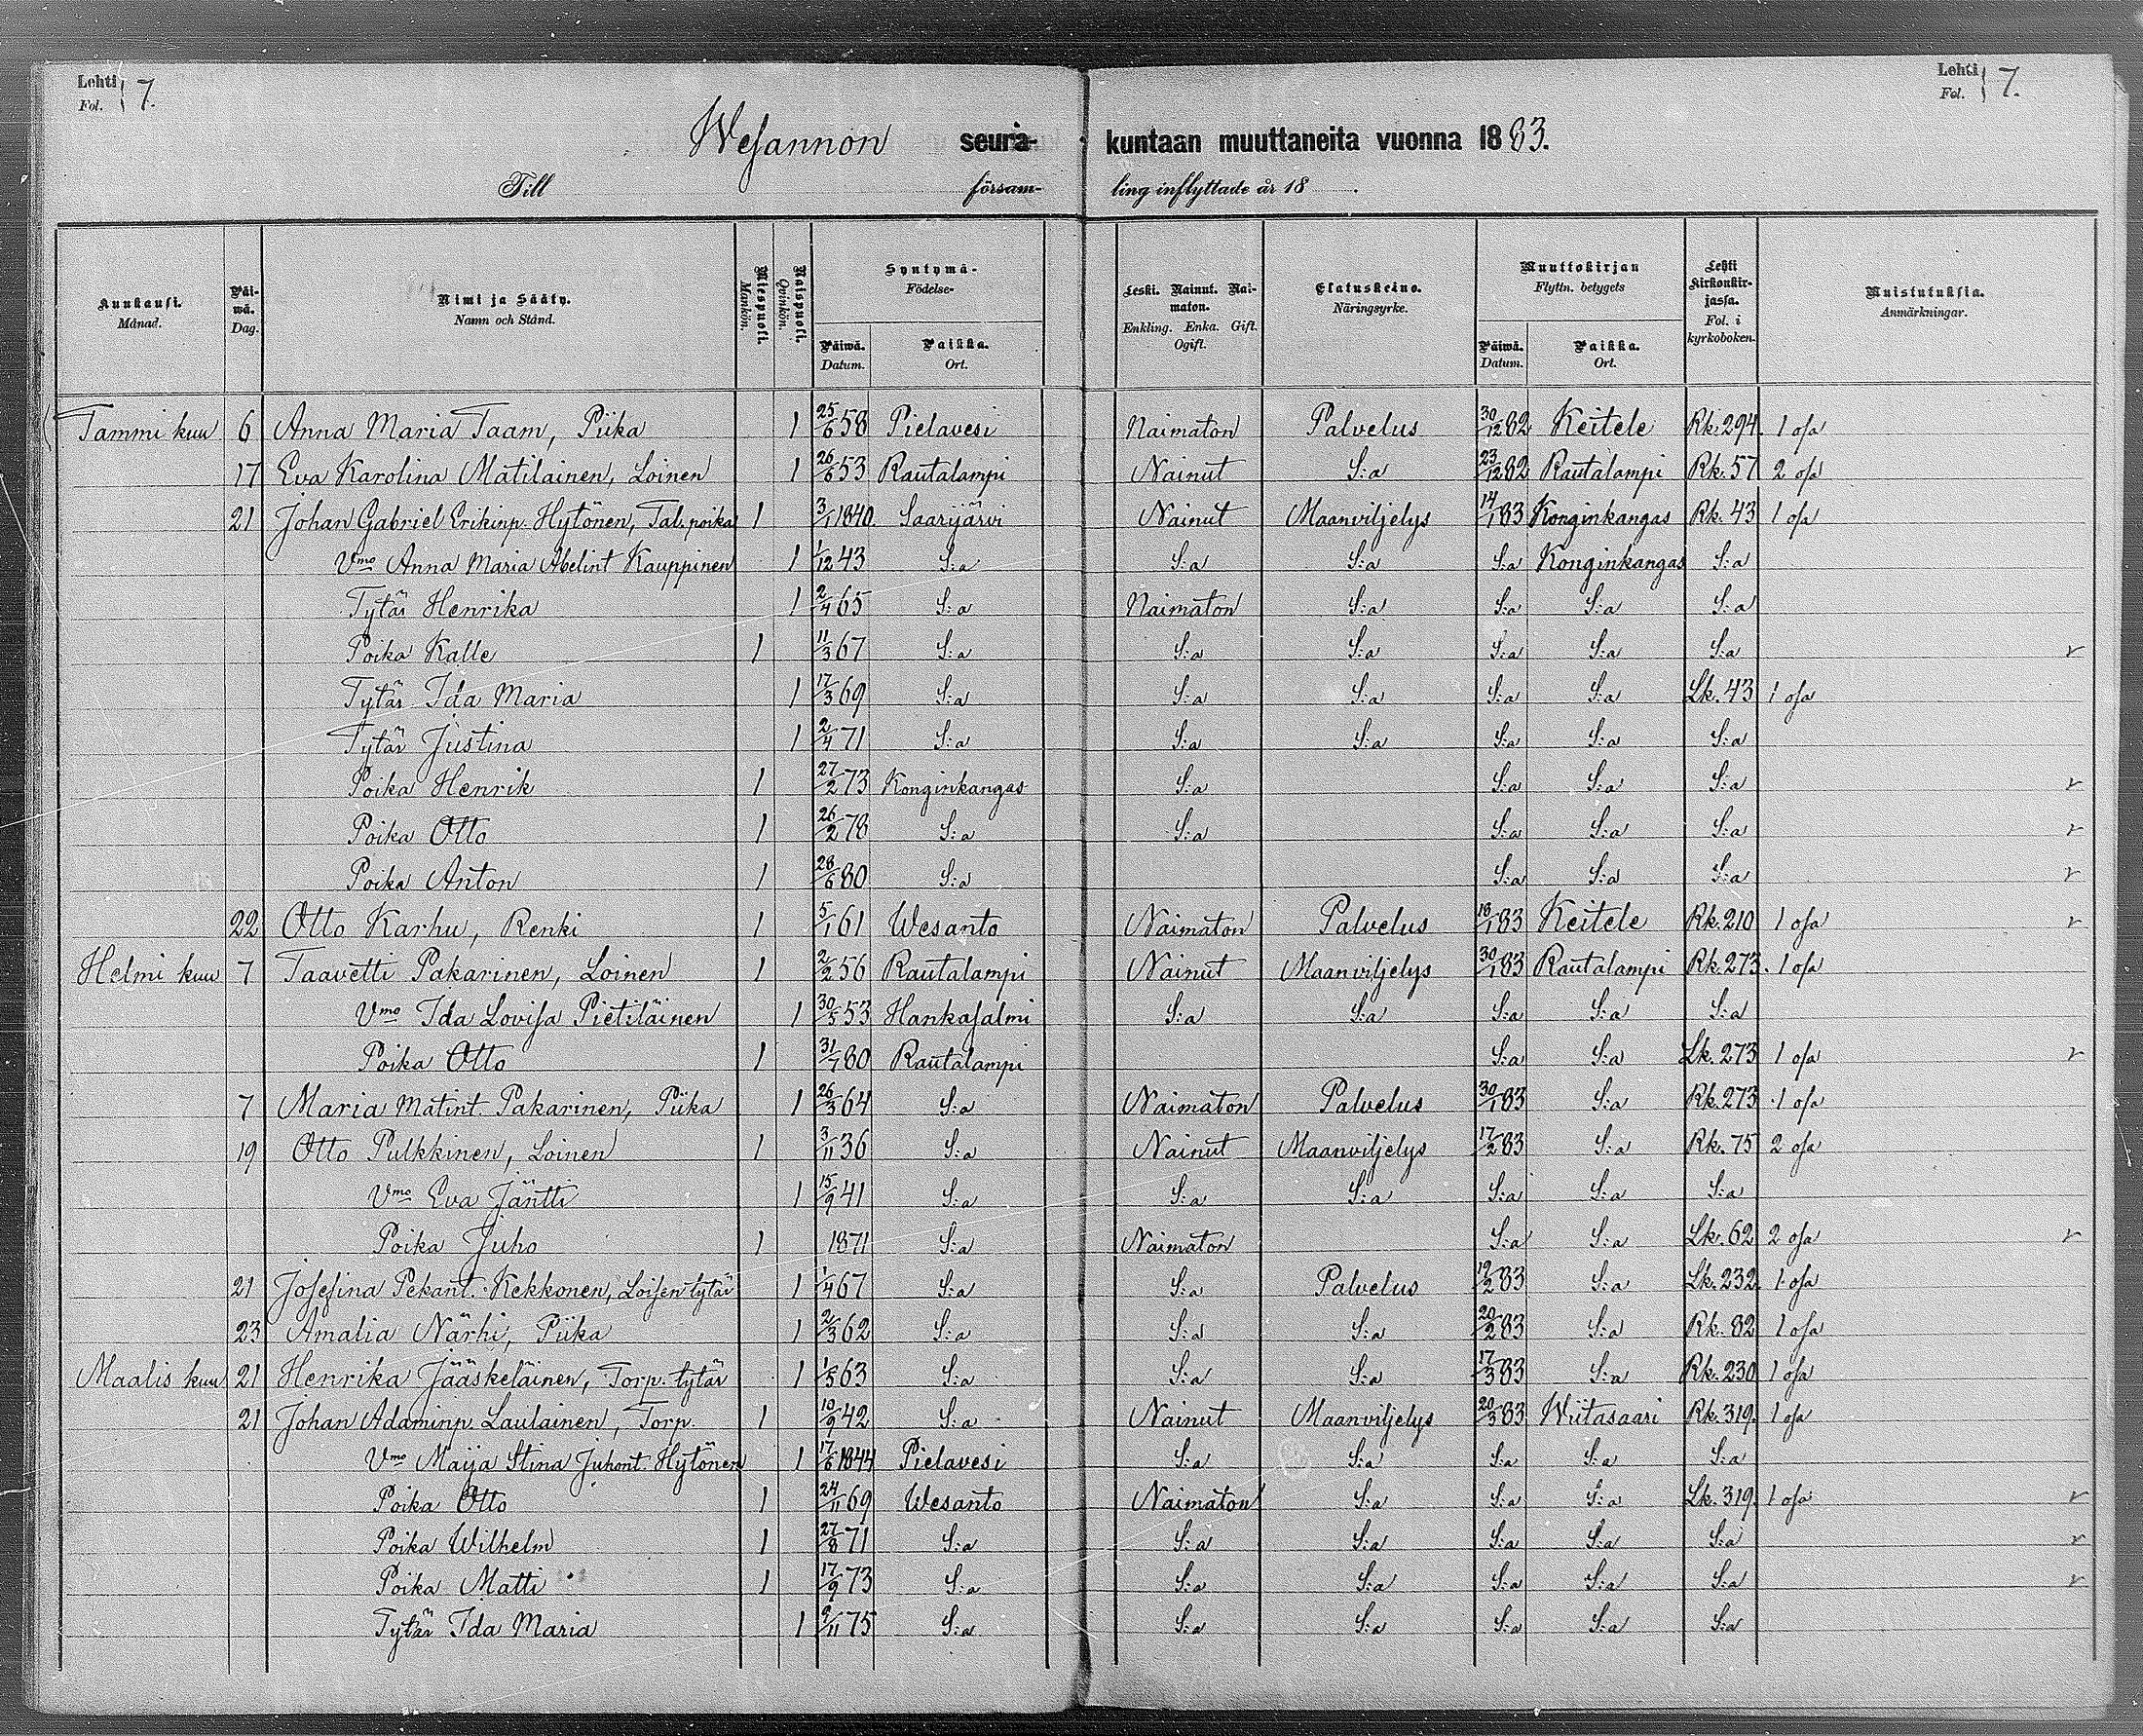 Lehti
Fol. 7.
Lehti
Fol. 7.
Wesannon seura- kuntaan muuttaneita vuonna 1883.
Till försam- ling inflyttade år 18 .
Kuukausi.
Månad.
Päi-
wä.
Dag.
Nimi ja Sääty.
Namn och Stånd.
Miespuoli.
Mankön.
Naispuoli.
Qvinkön.
Syntymä-
Födelse-
Päiwä.
Datum.
Paikka.
Ort.
Leski. Nainut. Nai-
maton.
Enkling. Enka. Gift.
Ogift.
Elatuskeino.
Näringsyrke.
Muuttokirjan
Flyttn. betygets
Päiwä.
Datum.
Paikka.
Ort.
Lehti
Kirkonkir-
jassa.
Fol. i
kyrkoboken.
Muistutuksia.
Anmärkningar.
Tammi kuu 6 Anna Maria Taam, Piika 1 25/6 58 Pielavesi Naimaton Palvelus 30/12 82 Keitele Rk. 294. 1 osa
17 Eva Karolina Matilainen, Loinen 1 26/6 53 Rautalampi Nainut S:a 23/12 82 Rautalampi Rk. 57 2 osa
21 Johan Gabriel Erikinp. Hytönen, Tal. poika 1 3/1 1840 Saarijärvi Nainut Maanviljelys 14/1 83 Konginkangas Rk. 43 1 osa
Vmo Anna Maria Abelint Kauppinen 1 1/12 43 S:a S:a S:a S:a Konginkangas S:a
Tytär Henrika 1 2/4 65 S:a Naimaton S:a S:a S:a S:a
Poika Kalle 1 11/3 67 S:a S:a S:a S:a S:a S:a
Tytär Ida Maria 1 17/3 69 S:a S:a S:a S:a S:a Lk. 43 1 osa
Tytär Justina 1 2/4 71 S:a S:a S:a S:a S:a S:a
Poika Henrik 1 27/2 73 Konginkangas S:a S:a S:a S:a
Poika Otto 1 26/2 78 S:a S:a S:a S:a S:a
Poika Anton 1 28/6 80 S:a S:a S:a S:a
22 Otto Karhu, Renki 1 5/1 61 Wesanto Naimaton Palvelus 18/1 83 Keitele Rk. 210 1 osa
Helmi kuu 7 Taavetti Pakarinen, Loinen 1 2/2 56 Rautalampi Nainut Maanviljelys 30/1 83 Rautalampi Rk. 273. 1 osa
Vmo Ida Lovisa Pietiläinen 1 30/5 53 Hankasalmi S:a S:a S:a S:a S:a
Poika Otto 1 31/7 80 Rautalampi S:a S:a Lk. 273 1 osa
7 Maria Matint. Pakarinen, Piika 1 26/3 64 S:a Naimaton Palvelus 30/1 83 S:a Rk. 273 1 osa
19 Otto Pulkkinen, Loinen 1 3/11 36 S:a Nainut Maanviljelys 17/2 83 S:a Rk. 75 2 osa
Vmo Eva Jäntti 1 15/9 41 S:a S:a S:a S:a S:a S:a
Poika Juho 1 1871 S:a Naimaton S:a S:a Lk. 62 2 osa
21 Josefina Pekant. Kekkonen, Loisen tytär 1 1/4 67 S:a S:a Palvelus 19/2 83 S:a Lk. 232. 1 osa
23 Amalia Närhi, Piika 1 2/3 62 S:a S:a S:a 20/2 83 S:a Rk. 82 1 osa
Maalis kuu 21 Henrika Jääskeläinen, Torp. tytär 1 1/5 63 S:a S:a S:a 17/3 83 S:a Rk. 230 1 osa
21 Johan Adaminp. Laulainen, Torp. 1 10/9 42 S:a Nainut Maanviljelys 20/3 83 Wiitasaari Rk. 319. 1 osa
Vmo Maija Stina Juhont. Hytönen 1 17/6 1844 Pielavesi S:a S:a S:a S:a S:a
Poika Otto 1 24/11 69 Wesanto Naimaton S:a S:a S:a Lk. 319. 1 osa
Poika Wilhelm 1 27/8 71 S:a S:a S:a S:a S:a S:a
Poika Matti 1 17/9 73 S:a S:a S:a S:a S:a S:a
Tytär Ida Maria 1 9/11 75 S:a S:a S:a S:a S:a S:a